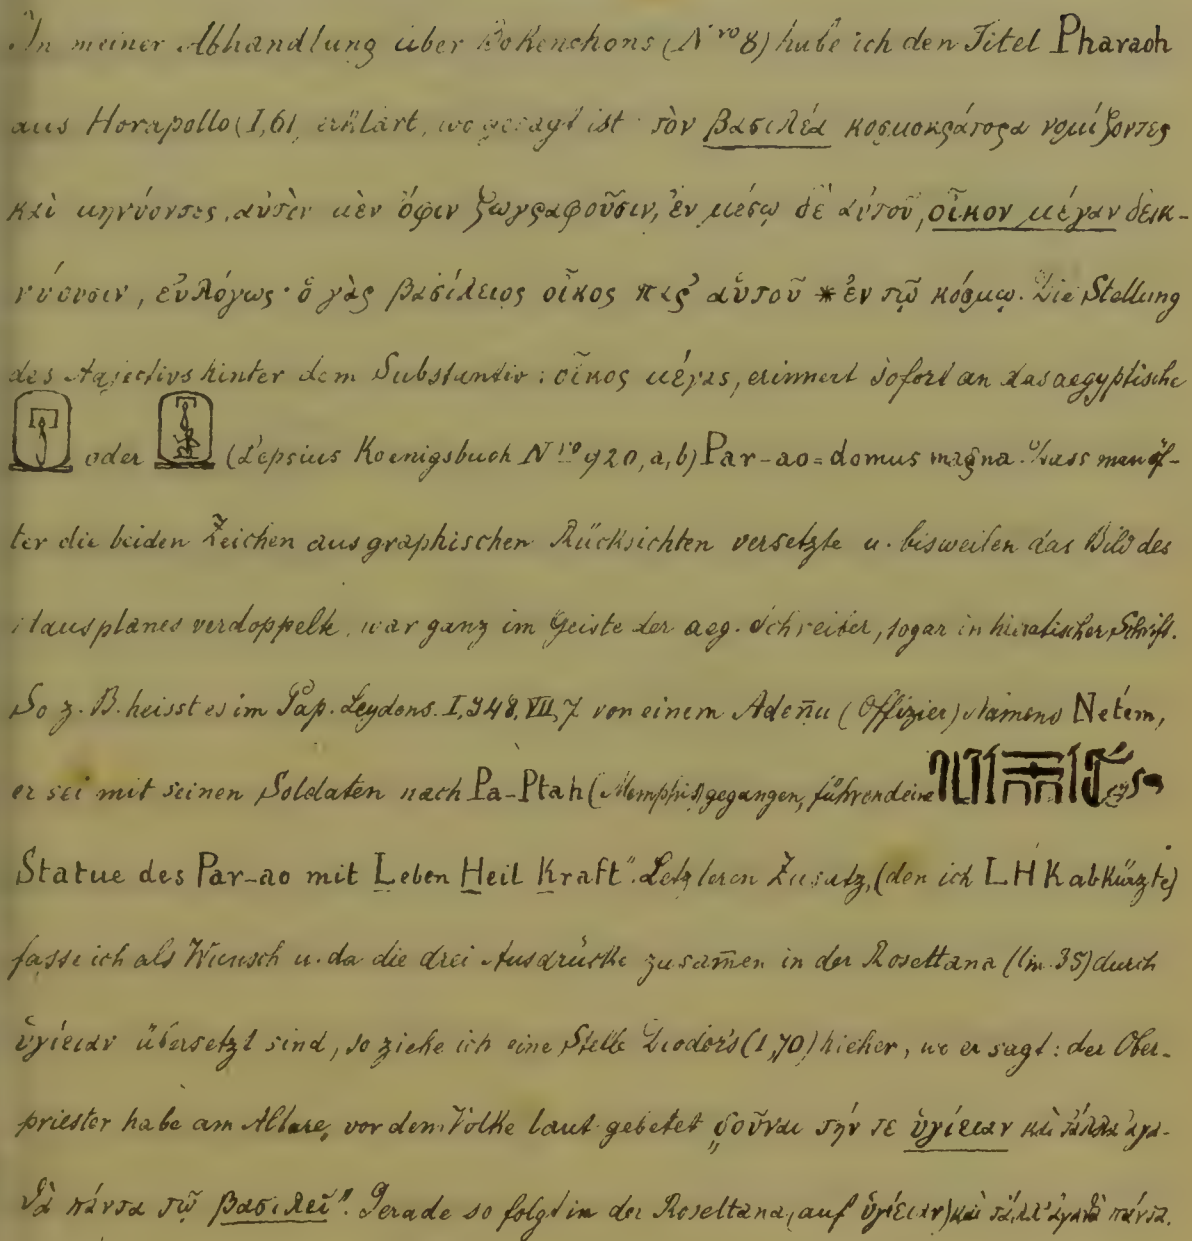 In meiner Abhandlung über Bokenchons (N ro 8) habe ich den Titel Pharaoh
aus Horapollo (I, 61) erklärt, wo gesagt ist τὸν βασιλέα κοσμοκράτορα νομίζοντες
καὶ μηνύοντες, αὐτὸν μὲν ὄφιν ζωγραφοῦσιν, ἐν μέσῳ δὲ αὐτοῦ, οἶκον μέγαν δεικ-
νύουσιν, εὐλόγως· ὁ γὰρ βασίλειος οἶκος παρ' αὐτοῦ * ἐν τῷ κόσμῳ. Die Stellung
des Adjectivs hinter dem Substantiv: οἶκος μέγας, erinnert sofort an das aegyptische
oder (Lepsius Koenigsbuch N ro 920, a, b) Par-ao = domus magna. Dass man öf-
ter die beiden Zeichen aus graphischen Rücksichten versetzte u. bisweilen das Bild des
Hausplanes verdoppelte, war ganz im Geiste der aeg. Schreiber, sogar in hieratischer Schrift.
So z. B. heisst es im Pap. Leydens. I, 348, VII, 7 von einem Adenu (Offizier) Namens Netém,
er sei mit seinen Soldaten nach Pa-Ptah (Memphis) gegangen, führend eine
Statue des Par-ao mit Leben Heil Kraft". Letzteren Zusatz, (den ich LHK abkürzte)
fasse ich als Wunsch u. da die drei Ausdrücke zusam̄en in der Rosettana (lin. 35) durch
ὑγίειαν übersetzt sind, so ziehe ich eine Stelle Diodors (1,70) hieher, wo er sagt: der Ober-
priester habe am Altare, vor dem Volke laut gebetet „δοῦναι τήν τε ὑγίειαν καὶ τἄλλα ἀγα-
θὰ πάντα τῷ βασιλεῖ". Gerade so folgt in der Rosettana, (auf ὑγίειαν) καὶ τἄλλ' ἀγαθὰ πάντα.